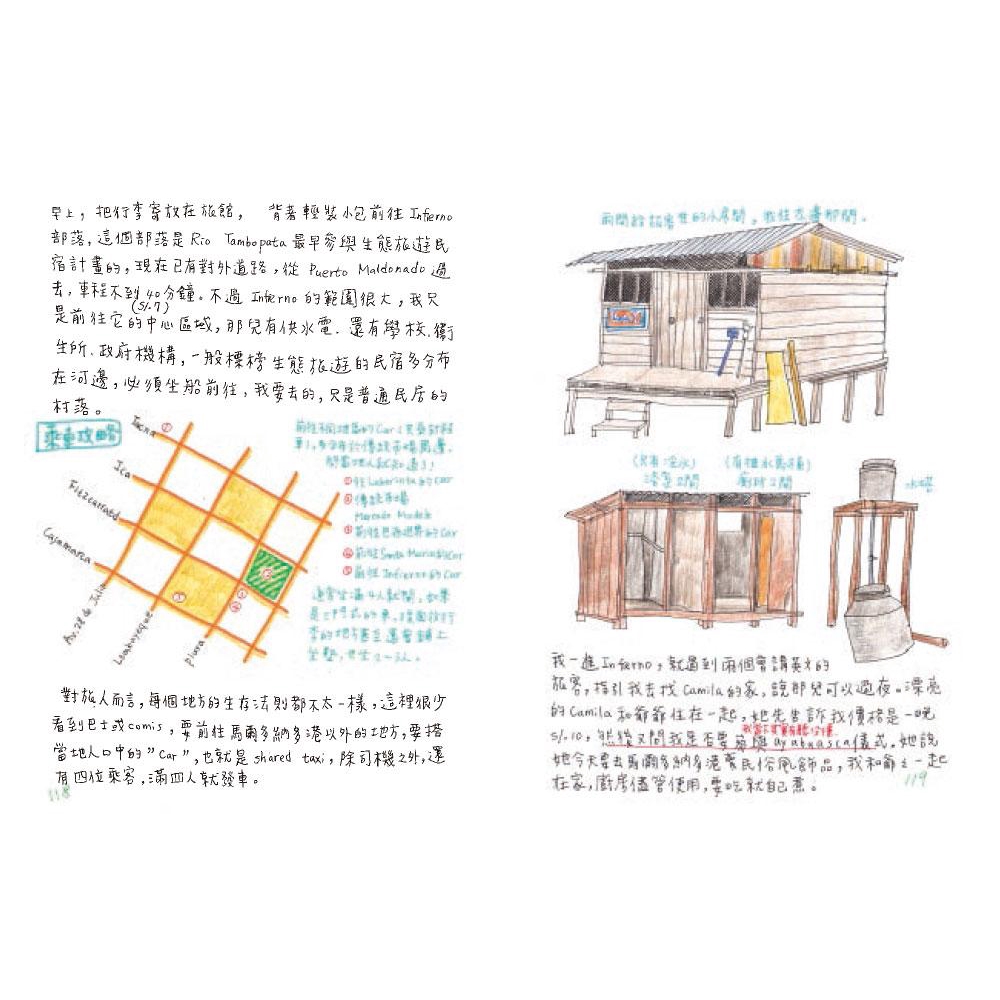 早上，把行李寄放在旅館， 背著輕裝小包前往 Inferno
部落，這個部落是 Rio Tambopata 最早參與生態旅遊民
宿計畫的，現在已有對外道路，從 Puerto Maldonado 過
去，車程不到 40 分鐘。不過 Inferno 的範圍很大，我只
(S/.7)
是前往它的中心區域，那兒有供水電、還有學校、衛
生所、政府機構，一般標榜生態旅遊的民宿多分布
在河邊，必須坐船前往，我要去的，只是普通民居的
村落。
乘車攻略
Tacna
Ica
Fitzcarrald
Cajamarca
Av. 28 de Julio
Lambayeque
Piura
前往不同地區的Car
問當地人就知道了！
①往Laberinto的Car
②傳統市場
Mercado Modelo
③前往巴西邊界的Car
④前往Santa Maria的Car
⑤前往Infierno的Car
通常坐滿4人就開，如果
對旅人而言，每個地方的生存法則都不太一樣，這裡很少
看到巴士或comis，要前往馬爾多納多港以外的地方，要搭
當地人口中的"Car"，也就是 shared taxi，除司機之外，還
有四位乘客，滿四人就發車。
118
兩間給旅客住的小房間，我住左邊那間。
(只有冷水)
浴室2間
(有抽水馬桶)
廁所2間
水塔
我一進Inferno，就遇到兩個會講英文的
旅客，指引我去找 Camila 的家，說那兒可以過夜。漂亮
的 Camila 和爺爺住在一起，她先告訴我價格是一晚
S/.10，然後又問我是否要參與 ayahuasca 儀式。她說
她今天要去馬爾多納多港賣民俗風飾品，我和爺爺一起
在家，廚房儘管使用，要吃就自己煮。
119